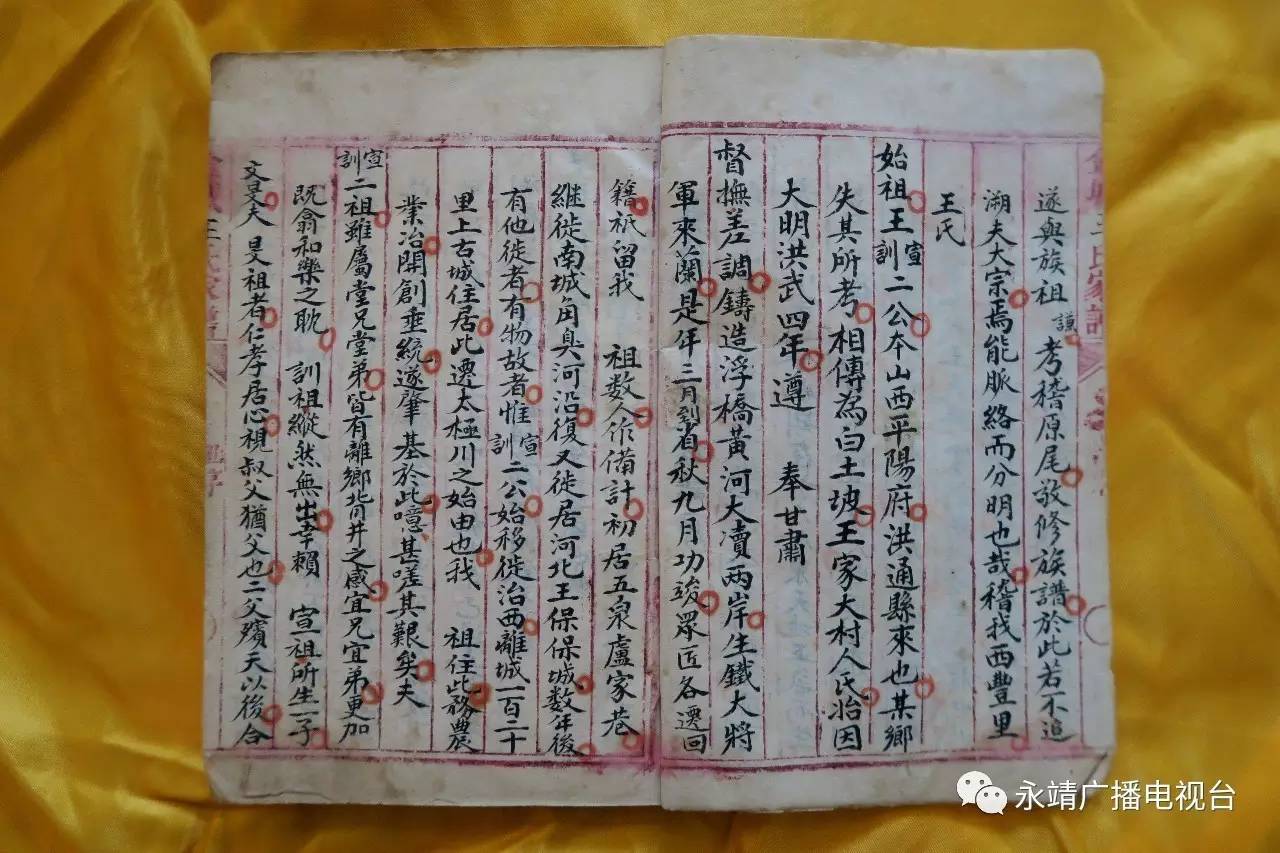 遂與族祖謙考稽原尾敬修族譜於此若不追
溯夫大宗焉能脈絡而分明也哉稽我西豐里
王氏
始祖王宣訓二公本山西平陽府洪通縣來也其鄉
失其所考相傳為白土坡王家大村人氏治因
大明洪武四年遵 奉甘肅
督撫差調鑄造浮橋黃河大瀆兩岸生鐵大將
軍來蘭是年三月到省秋九月功竣眾匠各遷回
籍祇留我 祖數人作備計初居五泉盧家巷
継徙南城角臭河沿復又徙居河北王保保城数年後
有他徙者有物故者惟宣訓二公始移徙治西離城一百二十
里上古城住居此遷太極川之始由也我 祖住此務農
業冶開創垂統遂肇基於此噫甚嗟其艱矣夫
宣訓二祖雖屬堂兄堂弟皆有離鄉背井之感宜兄宜弟更加
既翕和樂之耽 訓祖縱然無出幸賴 宣祖所生二子
文旻夫旻祖者仁孝居心視叔父猶父也二父殯天以後合
王氏家譜
序
永靖广播电视台